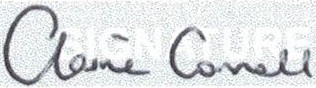 SIGNATURE
Claire Connell